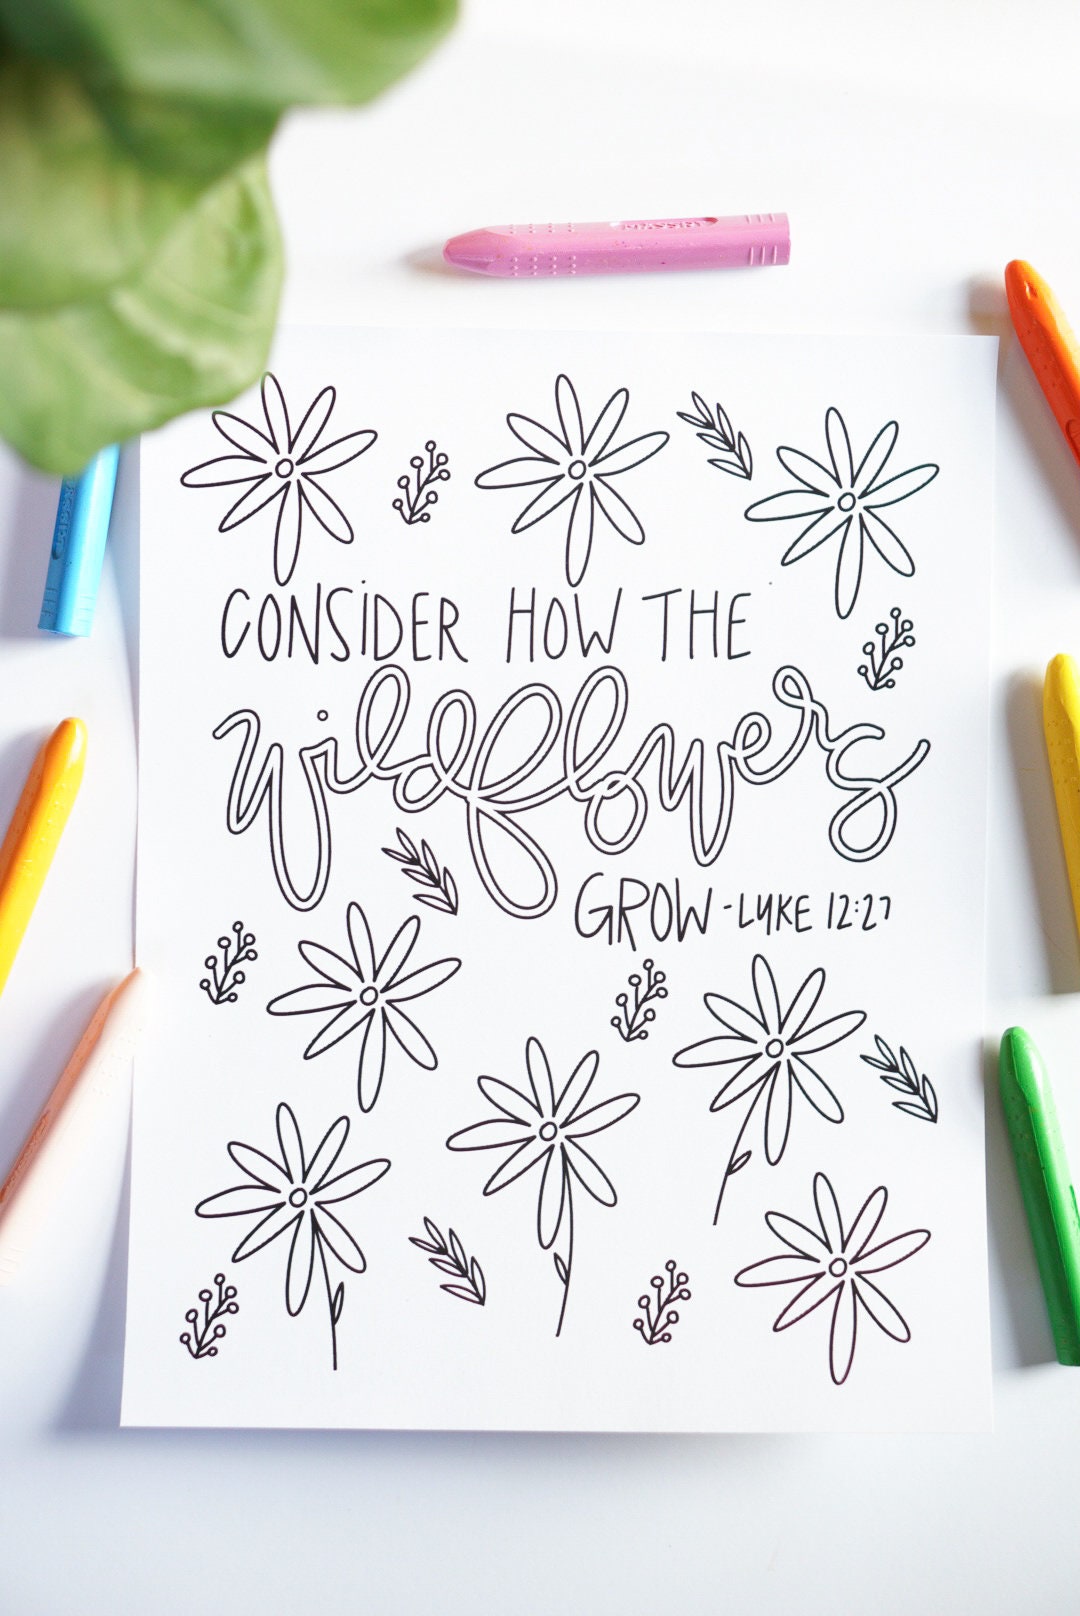 CONSIDER HOW THE
wildflowers
GROW - LUKE 12:27